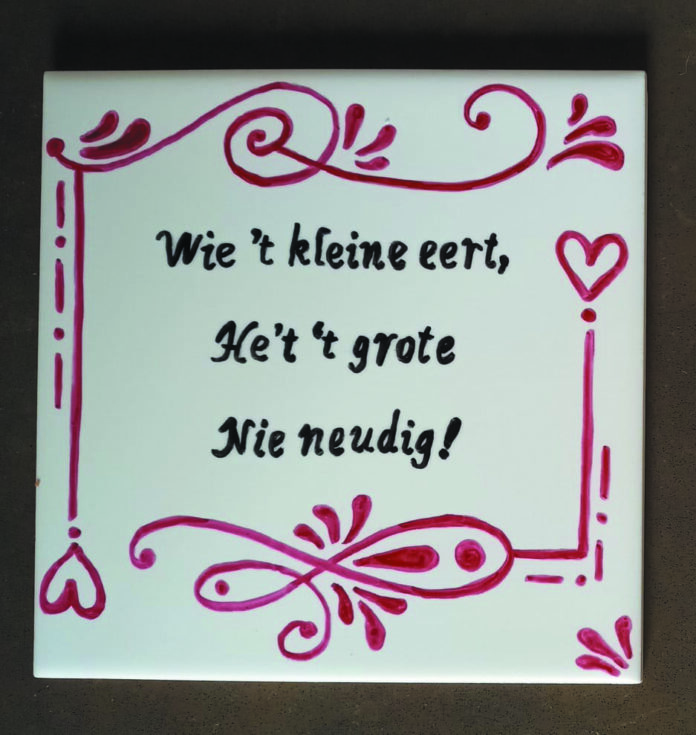 Wie 't kleine eert,
He't 't grote
Nie neudig!